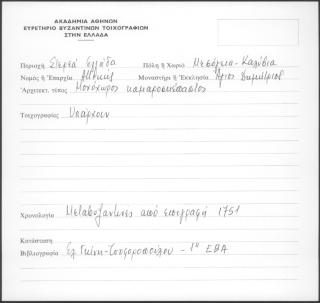 ΑΚΑΔΗΜΙΑ ΑΘΗΝΩΝ
ΕΥΡΕΤΗΡΙΟ ΒΥΖΑΝΤΙΝΩΝ ΤΟΙΧΟΓΡΑΦΙΩΝ
ΣΤΗΝ ΕΛΛΑΔΑ
Περιοχή Στερεά Ελλάδα Πόλη ἤ Χωριό Μεσόγεια - Καλύβια
Νομός ἤ Ἐπαρχία Αττικής Μοναστήρι ἤ Ἐκκλησία Άγιος Δημήτριος
Ἀρχιτεκτ. τύπος Μονόχωρος καμαροσκέπαστος
Τοιχογραφίες Υπάρχουν
Χρονολογία Μεταβυζαντινές από επιγραφή 1751
Κατάσταση
Βιβλιογραφία Ελ. Γκίνη-Τσοφοπούλου - 1η ΕΒΑ